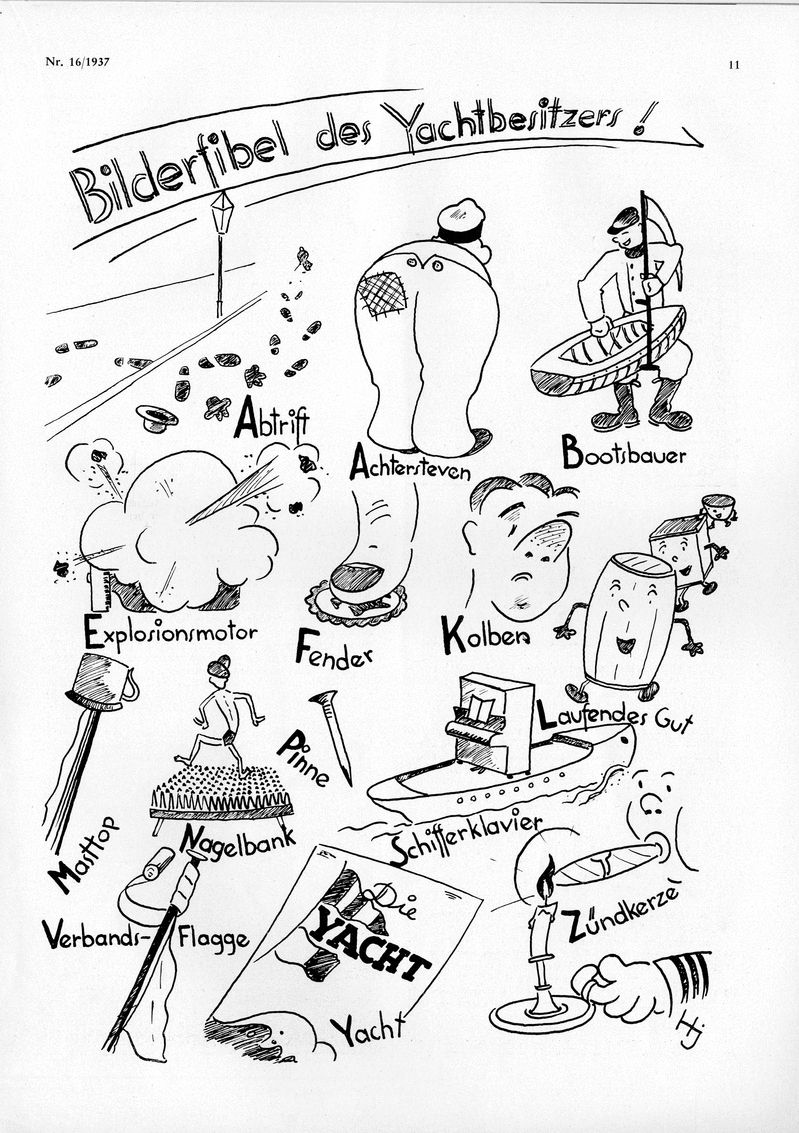 Nr. 16/1937
11
Bilderfibel des Yachtbesitzers!
Abtrift
Achtersteven
Bootsbauer
Explosionsmotor
Fender
Kolben
Laufendes Gut
Masttop
Nagelbank
Pinne
Schifferklavier
Verbands-Flagge
Die
YACHT
Yacht
Zündkerze
Hj